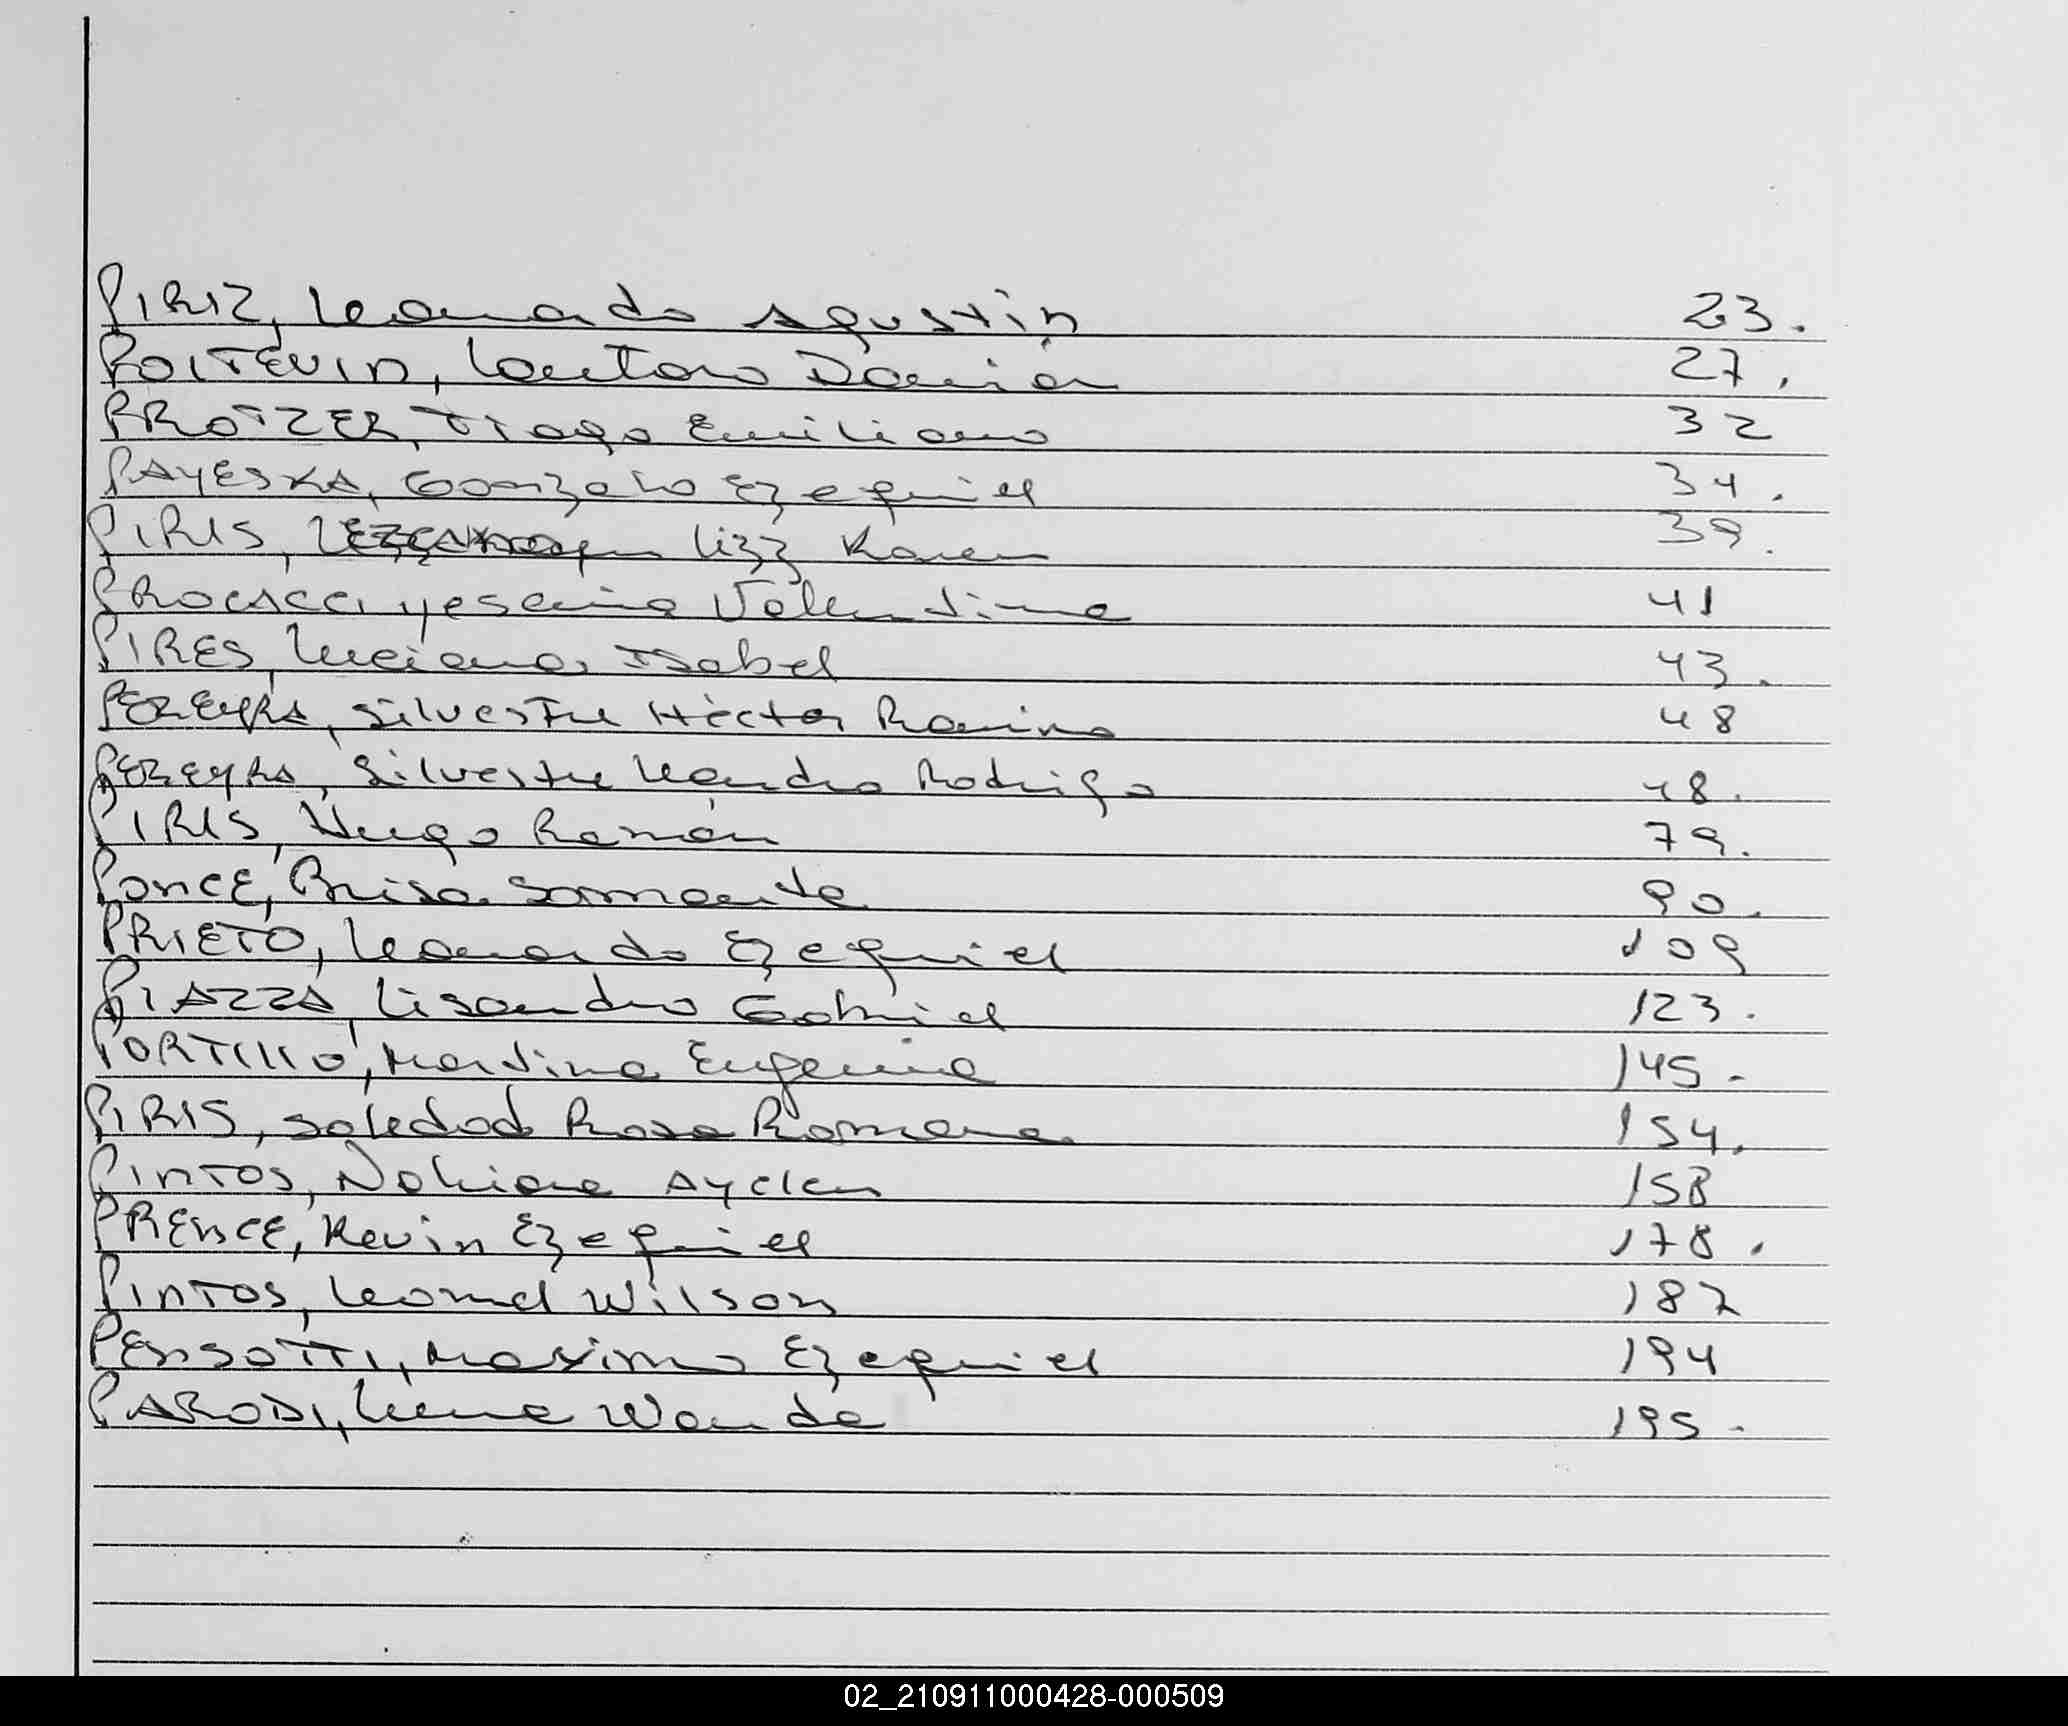 PIRIZ, Leonardo Agustin 23.
POITEVIN, Lautaro Damián 27.
PROTZER, Tiago Emiliano 32
PAYESKA, Gonzalo Ezequiel 34.
PIRIS, Lizz Karen 39.
PROCACCI, Yesenia Valentina 41
PIRES, Luciana Isabel 43.
PEREYRA, Silvestre Héctor Ramiro 48
PEREYRA, Silvestre Leandro Rodrigo 48.
PIRIS, Hugo Ramón 79.
PONCE, Brisa Samanta 90.
PRIETO, Leonardo Ezequiel 109
PIAZZA, Lisandro Gabriel 123.
PORTILLO, Martina Eugenia 145.
PIRIS, Soledad Rosa Romana 154.
PINTOS, Nahiara Aycelen 158
PRENCE, Kevin Ezequiel 178.
PINTOS, Leonel Wilson 187
PENSOTTI, Maximo Ezequiel 194
PARODI, Luna Wanda 195.
02_210911000428-000509